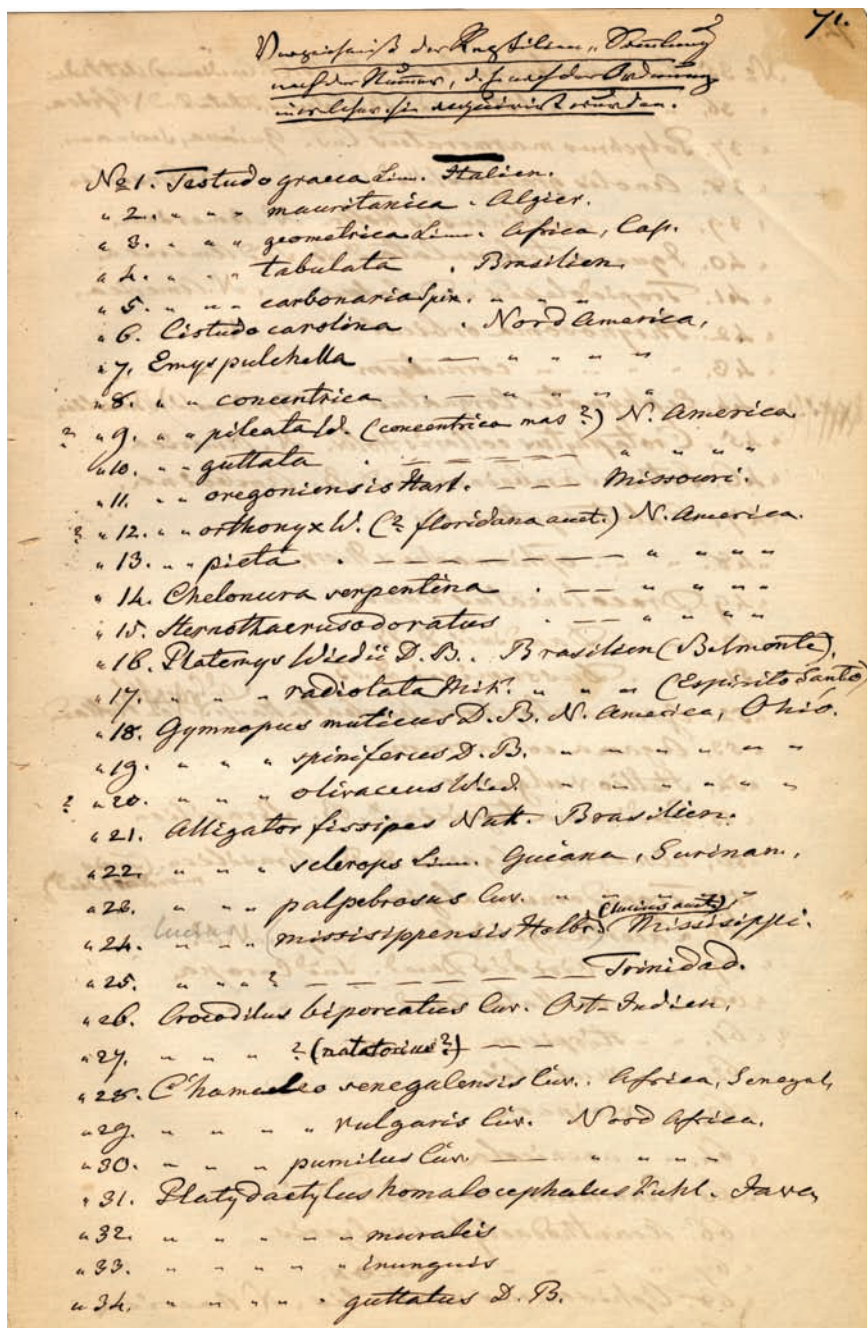 71.
Verzeichniß der Reptilien-Samlung
nach der Numer, d. h. nach der Ordnung
in welcher sie acquirirt wurden.
No 1. Testudo graeca Lin. Italien.
" 2. " " " mauritanica . Algier.
" 3. " " " geometrica Linn. Africa, Cap.
" 4. " " " tabulata . Brasilien.
" 5. " " " carbonaria Spix. " " "
" 6. Cistudo carolina . Nord America,
" 7. Emys pulchella . — " " " "
" 8. " " concentrica . — " " " "
? " 9. " " pileata W. (concentrica mas ?) N. America
" 10. " " guttata . — — — — — " " " "
" 11. " " oregoniensis Harl. — — — Missouri.
? " 12. " " orthonyx W. (? floridana auct.) N. America.
" 13. " " picta . — — — — — — — " " " "
" 14. Chelonura serpentina . — — " " " "
" 15. Sternothaerus odoratus . — — " " " "
" 16. Platemys Wiedii D. B. . Brasilien (Belmonte),
" 17. " " " radiolata Mik. " " " (Espirito Santo)
" 18. Gymnopus muticus D. B. N. America, Ohio.
" 19. " " " spiniferus D. B. " " " " "
? " 20. " " " olivaceus Wied. " " " " "
" 21. Alligator fissipes Natt. Brasilien.
" 22. " " " sclerops Linn. Guiana, Surinam,
" 23. " " " palpebrosus Cuv. " " " "
(lucius auct.)
" 24. lucius " " " missisippensis Holbr. Missisippi.
" 25. " " " ? — — — — — — — Trinidad.
" 26. Crocodilus biporcatus Cuv. Ost-Indien,
" 27. " " " " ? (natatorius ?) — —
" 28. Chamaeleo senegalensis Cuv. . Africa, Senegal,
" 29. " " " " " vulgaris Cuv. Nord Africa,
" 30. " " " " pumilus Cuv. — — " " " "
" 31. Platydactylus homalocephalus Kuhl. Java,
" 32. " " " " " " muralis
" 33. " " " " " " inunguis
" 34. " " " " " guttatus D. B.